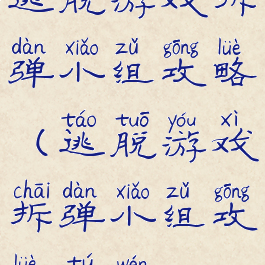 逃脱游戏拆
dàn xiǎo zǔ gōng lüè
弹小组攻略
táo tuō yóu xì
(逃脱游戏
chāi dàn xiǎo zǔ gōng
拆弹小组攻
lüè tú wén